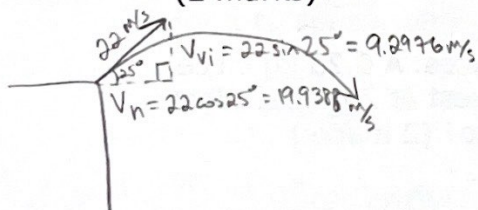 22 m/s
25°
Vvi = 22 sin 25° = 9.2976 m/s
Vh = 22 cos 25° = 19.9388 m/s